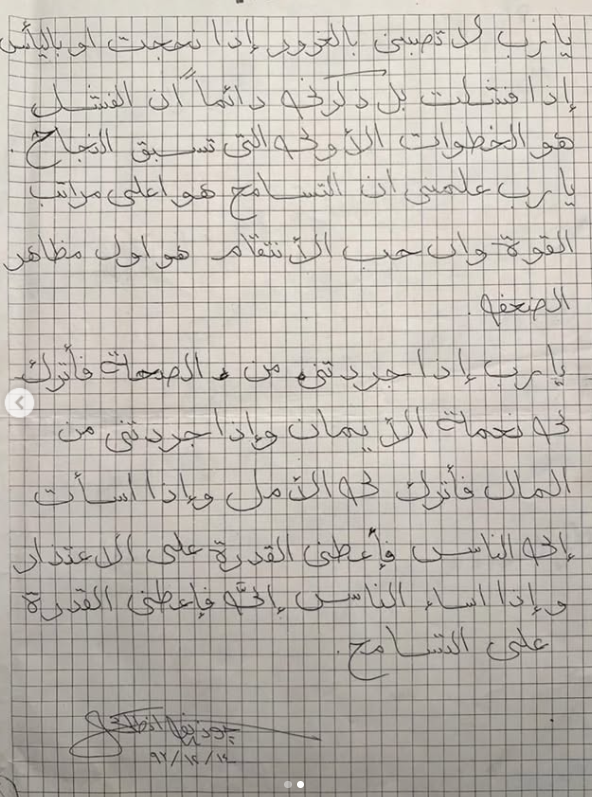 يارب لا تصبني بالغرور إذا نجحت او باليأس
إذا فشلت بل ذكرني دائماً أن الفشل
هو الخطوات الأولى التي تسبق النجاح.
يارب علمني ان التسامح هو اعلى مراتب
القوة وان حب الأنتقام هو اول مظاهر
الضعف.
يارب إذا جردتني من الصحة فأترك
لي نعمة الأيمان وإذا جردتني من
المال فأترك لي الأمل وإذا اسأت
إلى الناس فأعطني القدرة على الاعتذار
وإذا اساء الناس إليَّ فإعطني القدرة
على التسامح.